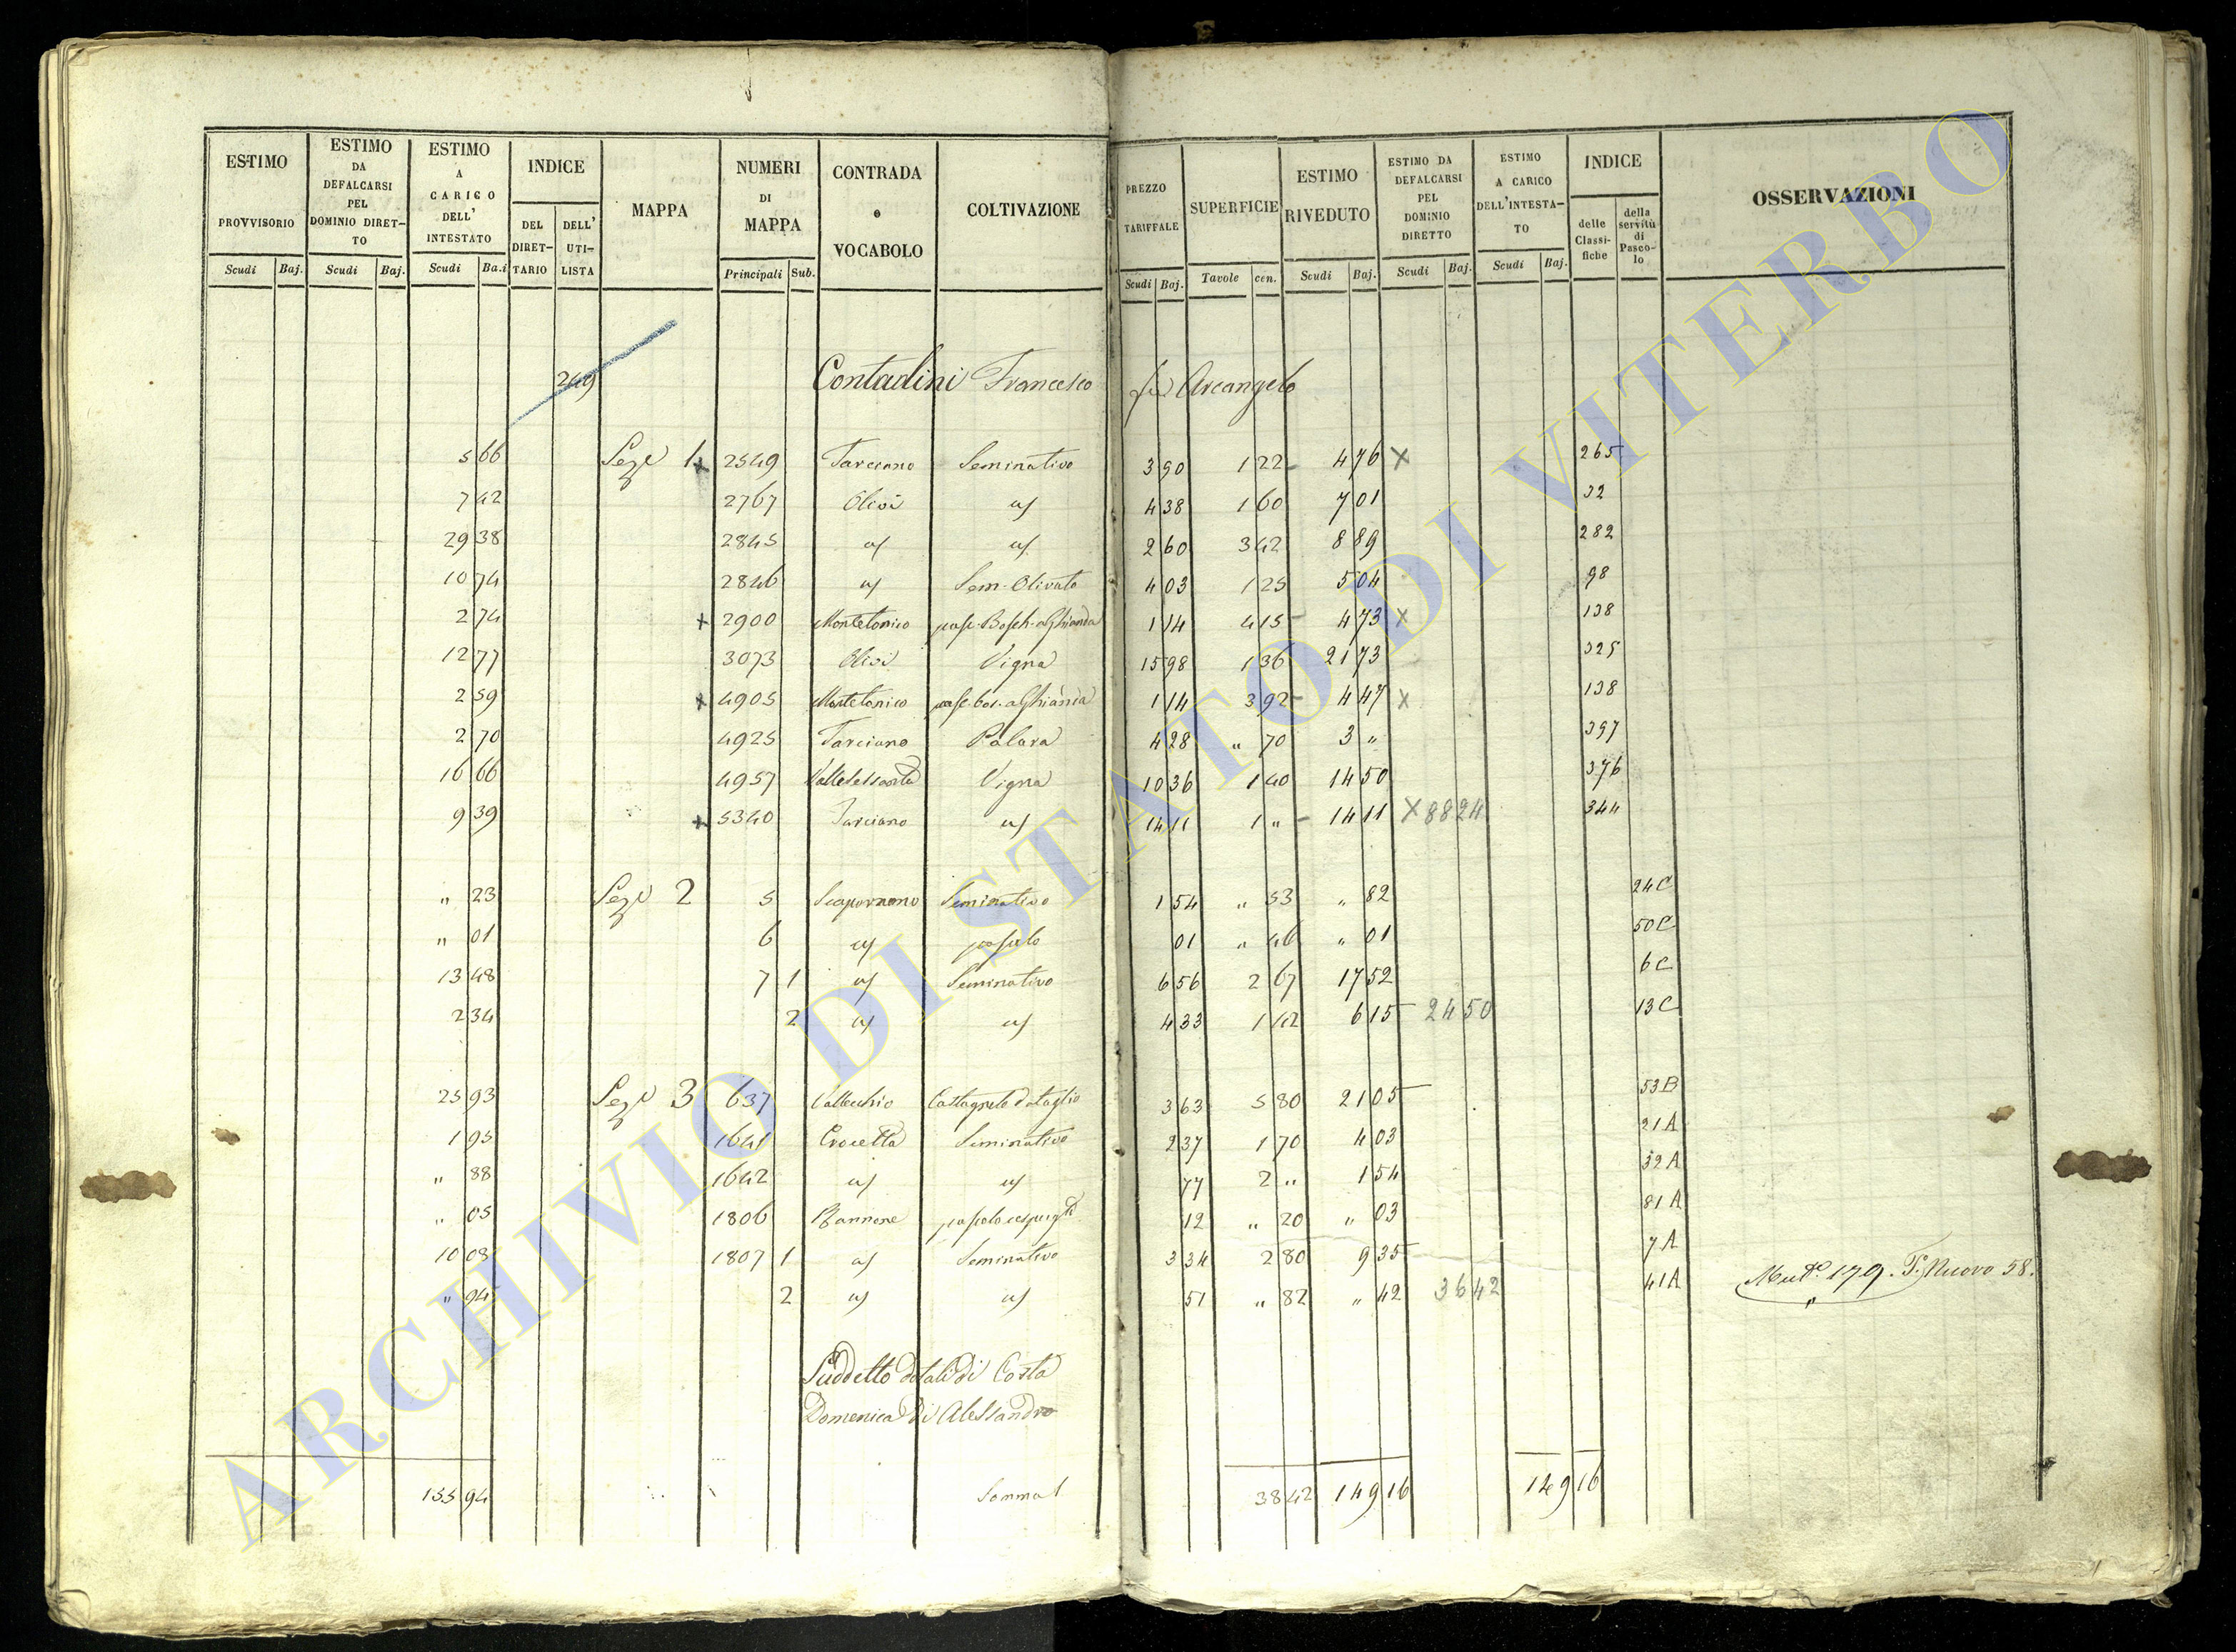 ESTIMO PROVVISORIO Scudi Baj.
ESTIMO DA DEFALCARSI PEL DOMINIO DIRET-TO Scudi Baj.
ESTIMO A CARICO DELL' INTESTATO Scudi Ba.i
INDICE DEL DIRET-TARIO DELL' UTI-LISTA
MAPPA
NUMERI DI MAPPA Principali Sub.
CONTRADA e VOCABOLO
COLTIVAZIONE
PREZZO TARIFFALE Scudi Baj.
SUPERFICIE Tavole cen.
ESTIMO RIVEDUTO Scudi Baj.
ESTIMO DA DEFALCARSI PEL DOMINIO DIRETTO Scudi Baj.
ESTIMO A CARICO DELL'INTESTA-TO Scudi Baj.
INDICE delle Classi-fiche della servitù di Pasco-lo
OSSERVAZIONI
249 Contadini Francesco fu Arcangelo
5 66 Sezе 1 x 2549 Tarciano Seminativo 3 90 1 22 4 76 x 265
7 42 2767 Olivi id 4 38 1 60 7 01 32
29 38 2845 id id 2 60 3 42 8 89 282
10 74 2846 id Sem. Olivato 4 03 1 25 5 04 98
2 74 x 2900 Montetonico pasc. Bosch. a Ghianda 1 14 4 15 4 73 x 138
12 77 3073 Olivi Vigna 15 98 1 36 21 73 325
2 59 x 4905 Montetonico pasc. bos. a Ghianda 1 14 3 92 4 47 x 138
2 70 4925 Tarciano 4 28 " 70 3 " 397
16 66 4957 Vigna 10 36 1 40 14 50 376
9 39 x 5340 Tarciano id 14 11 1 " 14 11 x 88 24 344
" 23 Seze 2 5 Seminativo 1 54 " 53 " 82 24 C
" 01 6 id pascolo 01 " 46 " 01 50 C
13 48 7 1 id Seminativo 6 56 2 67 17 52 6 C
2 34 2 id id 4 33 1 42 6 15 24 50 13 C
25 93 Seze 3 637 Vallecchio Castagneto da taglio 3 63 5 80 21 05 53 B
1 95 1641 Crocetta Seminativo 2 37 1 70 4 03 21 A
" 88 1642 id id 77 2 " 1 54 32 A
" 05 1806 pascolo cespugto 12 " 20 " 03 81 A
10 08 1807 1 id Seminativo 3 34 2 80 9 35 7 A
" 94 2 id id 51 " 82 " 42 36 42 41 A Muto. 179. To. Nuovo 58.
Suddetto dotali di Costa
Domenica di Alessandro
155 94 Somma 38 42 149 16 149 16
ARCHIVIO DI STATO DI VITERBO